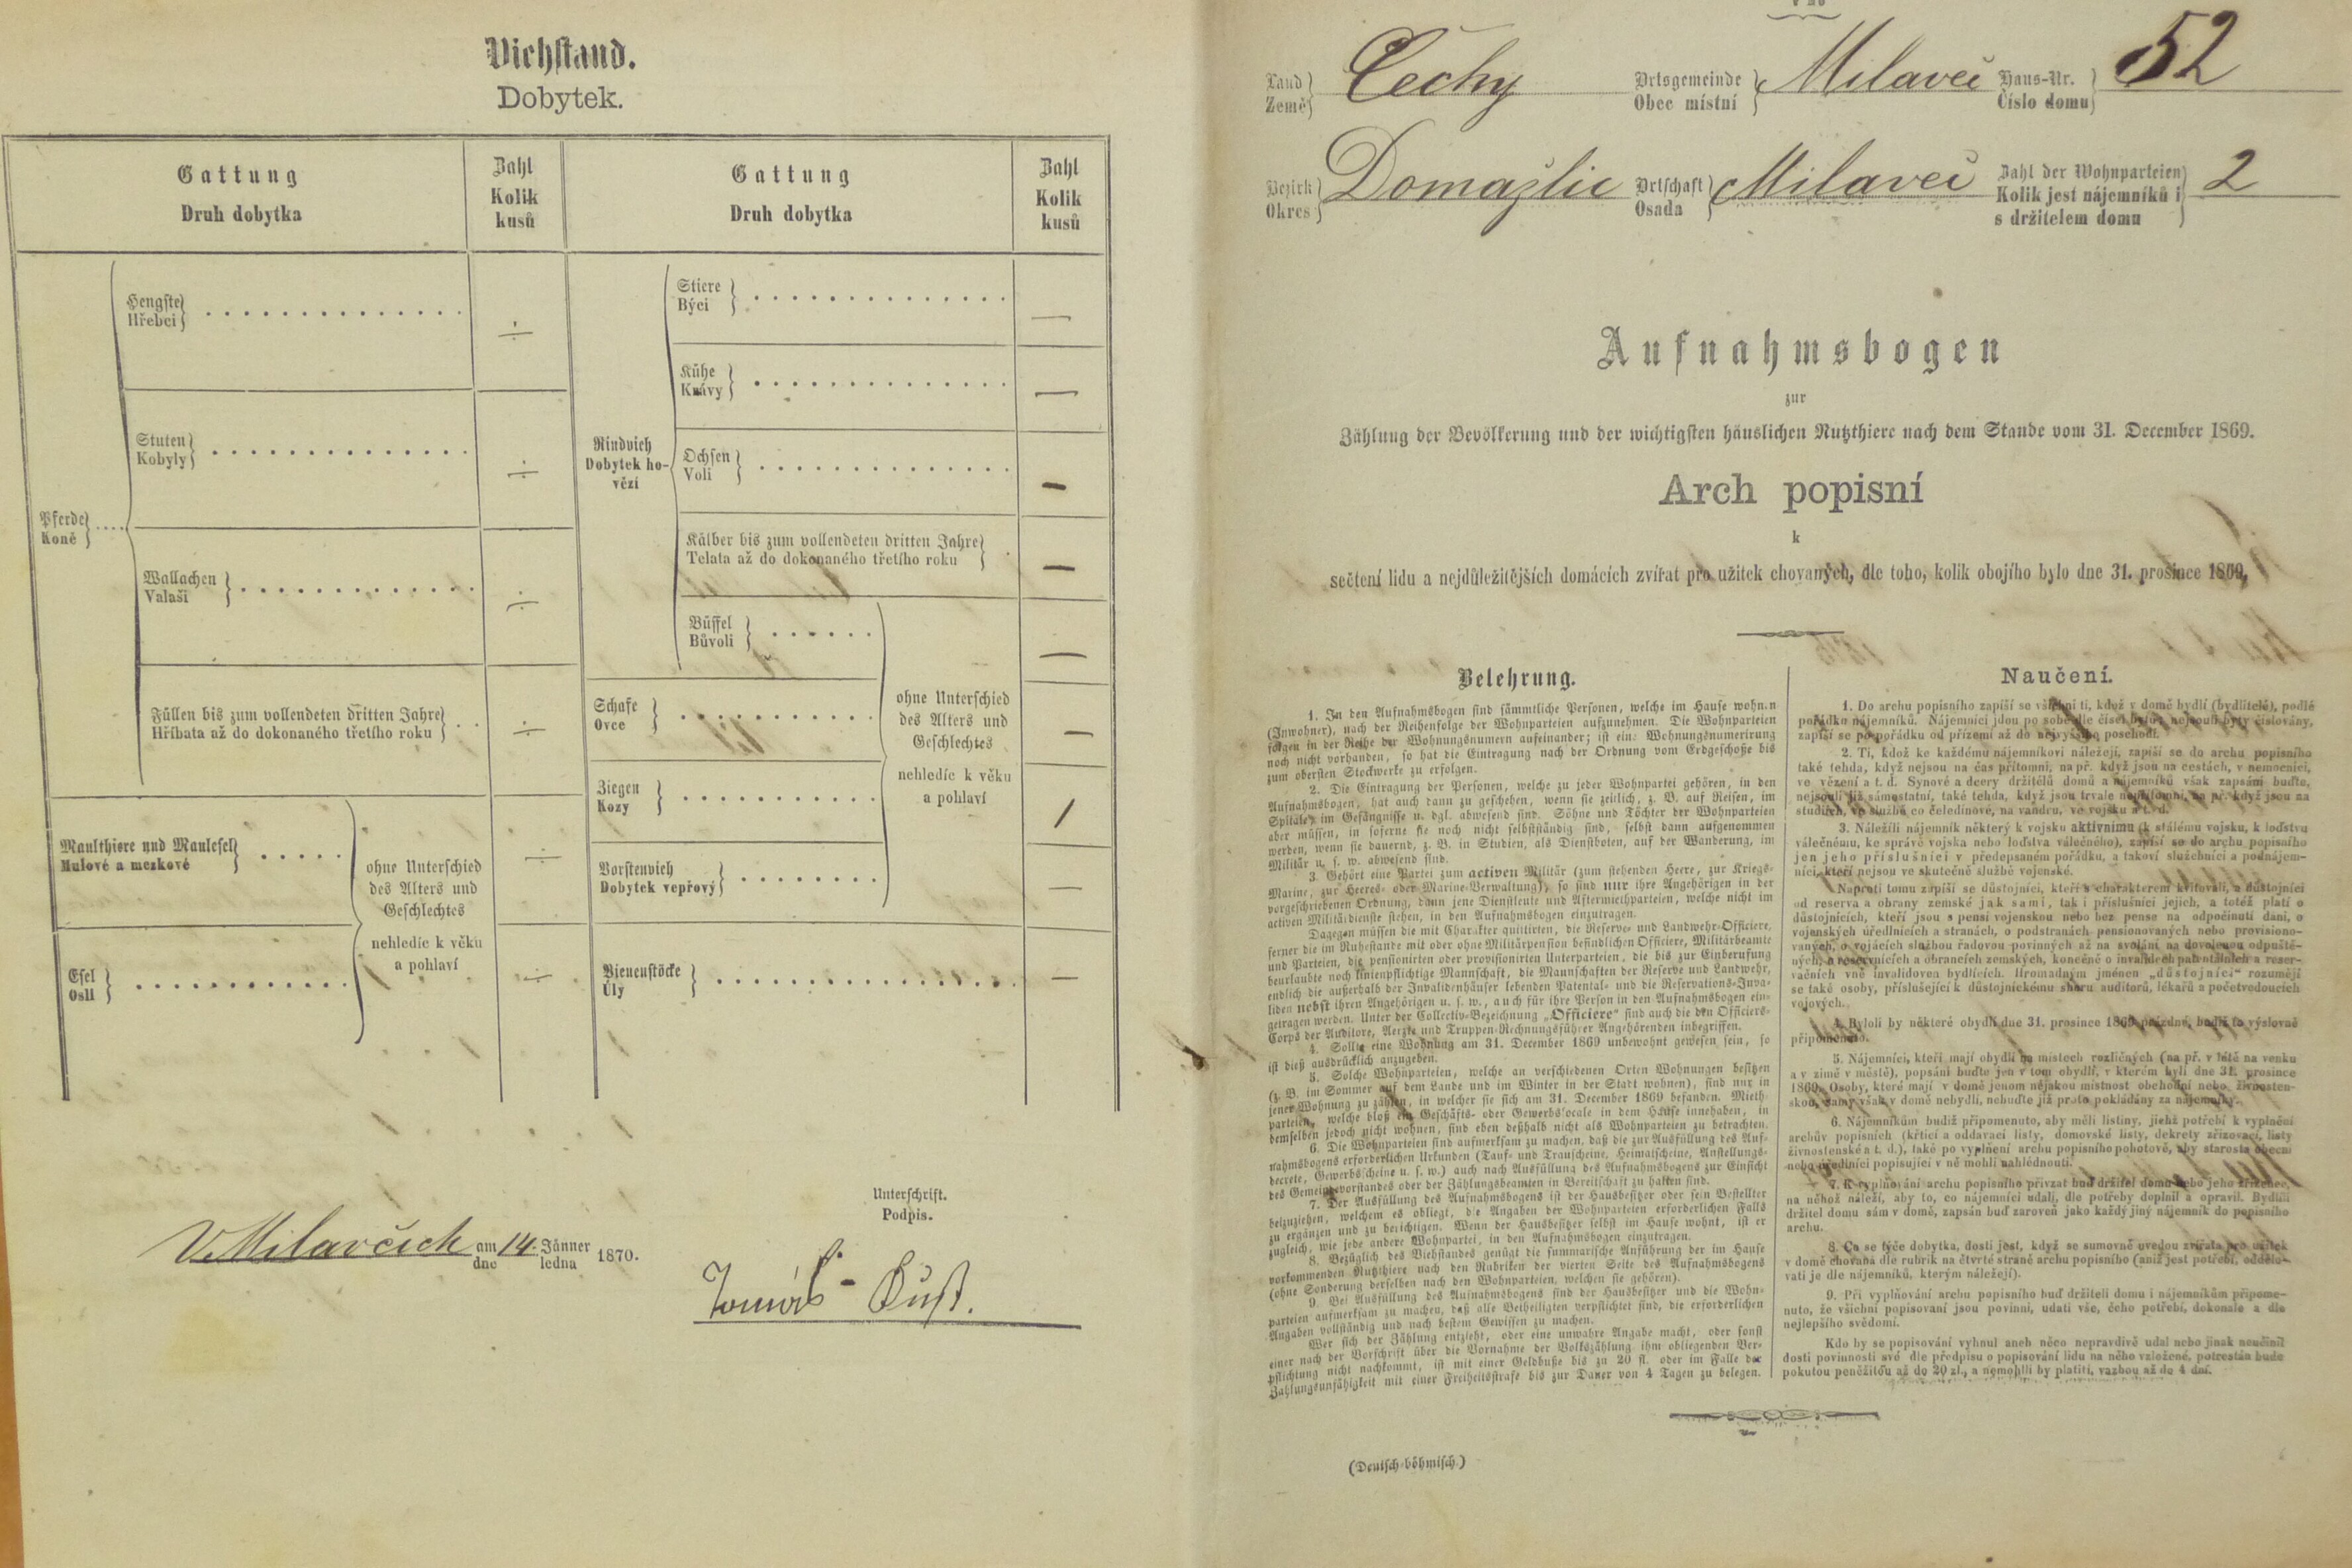 Viehstand.
Dobytek.
Gattung
Druh dobytka
Zahl
Kolik
kusů
Gattung
Druh dobytka
Zahl
Kolik
kusů
Pferde
Koně
Hengste
Hřebci
÷
Stuten
Kobyly
÷
Wallachen
Valaši
÷
Füllen bis zum vollendeten dritten Jahre
Hříbata až do dokonaného třetího roku
÷
Maulthiere und Maulesel
Mulové a mezkové
÷
Esel
Osli
÷
ohne Unterschied
des Alters und
Geschlechtes
nehledíc k věku
a pohlaví
Rindvieh
Dobytek ho-
vězí
Stiere
Býci
—
Kühe
Krávy
—
Ochsen
Voli
—
Kälber bis zum vollendeten dritten Jahre
Telata až do dokonaného třetího roku
—
Büffel
Bůvoli
—
Schafe
Ovce
—
Ziegen
Kozy
/
Borstenvieh
Dobytek vepřový
—
ohne Unterschied
des Alters und
Geschlechtes
nehledíc k věku
a pohlaví
Bienenstöcke
Úly
—
Unterschrift.
Podpis.
V Milavčích am 14. Jänner 1870.
dne ledna
Tomáš
Land Čechy Ortsgemeinde Milaveč Haus-Nr. 52
Země Obec místní Číslo domu
Bezirk Domažlic Ortschaft Milaveč Zahl der Wohnparteien 2
Okres Osada Kolik jest nájemníků i
s držitelem domu
Aufnahmsbogen
zur
Zählung der Bevölkerung und der wichtigsten häuslichen Nutzthiere nach dem Stande vom 31. December 1869.
Arch popisní
k
sečtení lidu a nejdůležitějších domácích zvířat pro užitek chovaných, dle toho, kolik obojího bylo dne 31. prosince 1869.
Belehrung.
1. In den Aufnahmsbogen sind sämmtliche Personen, welche im Hause wohnen
(Inwohner), nach der Reihenfolge der Wohnparteien aufzunehmen. Die Wohnparteien
folgen in der Reihe der Wohnungsnumern aufeinander; ist eine Wohnungsnumerirung
noch nicht vorhanden, so hat die Eintragung nach der Ordnung vom Erdgeschoße bis
zum obersten Stockwerke zu erfolgen.
2. Die Eintragung der Personen, welche zu jeder Wohnpartei gehören, in den
Aufnahmsbogen, hat auch dann zu geschehen, wenn sie zeitlich, z. B. auf Reisen, im
Spitale, im Gefängnisse u. dgl. abwesend sind. Söhne und Töchter der Wohnparteien
aber müssen, in soferne sie noch nicht selbstständig sind, selbst dann aufgenommen
werden, wenn sie dauernd, z. B. in Studien, als Dienstboten, auf der Wanderung, im
Militär u. s. w. abwesend sind.
3. Gehört eine Partei zum activen Militär (zum stehenden Heere, zur Kriegs-
Marine, zur Heeres- oder Marine-Verwaltung), so sind nur ihre Angehörigen in der
vorgeschriebenen Ordnung, dann jene Dienstleute und Aftermiethparteien, welche nicht im
activen Militärdienste stehen, in den Aufnahmsbogen einzutragen.
Dagegen müssen die mit Charakter quittirten, die Reserve- und Landwehr-Officiere,
ferner die im Ruhestande mit oder ohne Militärpension befindlichen Officiere, Militärbeamte
und Parteien, die pensionirten oder provisionirten Unterparteien, die bis zur Einberufung
beurlaubte noch linienpflichtige Mannschaft, die Mannschaften der Reserve und Landwehr,
endlich die außerhalb der Invalidenhäuser lebenden Patental- und die Reservations-Inva-
liden nebst ihren Angehörigen u. s. w., auch für ihre Person in den Aufnahmsbogen ein-
getragen werden. Unter der Collectiv-Bezeichnung „Officiere" sind auch die den Officiers-
Corps der Auditore, Aerzte und Truppen-Rechnungsführer Angehörenden inbegriffen.
4. Sollte eine Wohnung am 31. December 1869 unbewohnt gewesen sein, so
ist dieß ausdrücklich anzugeben.
5. Solche Wohnparteien, welche an verschiedenen Orten Wohnungen besitzen
(z. B. im Sommer auf dem Lande und im Winter in der Stadt wohnen), sind nur in
jener Wohnung zu zählen, in welcher sie sich am 31. December 1869 befanden. Mieth-
parteien, welche bloß ein Geschäfts- oder Gewerbslocale in dem Hause innehaben, in
demselben jedoch nicht wohnen, sind eben deßhalb nicht als Wohnparteien zu betrachten.
6. Die Wohnparteien sind aufmerksam zu machen, daß die zur Ausfüllung des Auf-
nahmsbogens erforderlichen Urkunden (Tauf- und Trauscheine, Heimatscheine, Anstellungs-
decrete, Gewerbsscheine u. s. w.) auch nach Ausfüllung des Aufnahmsbogens zur Einsicht
des Gemeindevorstandes oder der Zählungsbeamten in Bereitschaft zu halten sind.
7. Der Ausfüllung des Aufnahmsbogens ist der Hausbesitzer oder sein Bestellter
beizuziehen, welchem es obliegt, die Angaben der Wohnparteien erforderlichen Falls
zu ergänzen und zu berichtigen. Wenn der Hausbesitzer selbst im Hause wohnt, ist er
zugleich, wie jede andere Wohnpartei, in den Aufnahmsbogen einzutragen.
8. Bezüglich des Viehstandes genügt die summarische Anführung der im Hause
vorkommenden Nutzthiere nach den Rubriken der vierten Seite des Aufnahmsbogens
(ohne Sonderung derselben nach den Wohnparteien, welchen sie gehören).
9. Bei Ausfüllung des Aufnahmsbogens sind der Hausbesitzer und die Wohn-
parteien aufmerksam zu machen, daß alle Betheiligten verpflichtet sind, die erforderlichen
Angaben vollständig und nach bestem Gewissen zu machen.
Wer sich der Zählung entzieht, oder eine unwahre Angabe macht, oder sonst
einer nach der Vorschrift über die Vornahme der Volkszählung ihm obliegenden Ver-
pflichtung nicht nachkommt, ist mit einer Geldbuße bis zu 20 fl. oder im Falle der
Zahlungsunfähigkeit mit einer Freiheitsstrafe bis zur Dauer von 4 Tagen zu belegen.
Naučení.
1. Do archu popisního zapíší se všichni ti, kdož v domě bydlí (bydlitelé), podlé
pořádku nájemníků. Nájemníci jdou po sobě dle čísel bytů; nejsouli byty číslovány,
zapíší se po pořádku od přízemí až do nejvyššího poschodí.
2. Ti, kdož ke každému nájemníkovi náležejí, zapíší se do archu popisního
také tehda, když nejsou na čas přítomni, na př. když jsou na cestách, v nemocnici,
ve vězení a t. d. Synové a dcery držitelů domů a nájemníků však zapsáni buďte,
nejsouli již sámostatní, také tehda, když jsou trvale nepřítomni, na př. když jsou na
studiích, ve službě co čeledínové, na vandru, ve vojsku a t. d.
3. Náležíli nájemník některý k vojsku aktivnímu (k stálému vojsku, k loďstvu
válečnému, ke správě vojska nebo loďstva válečného), zapíší se do archu popisního
jen jeho příslušníci v předepsaném pořádku, a takoví služebníci a podnájem-
níci, kteří nejsou ve skutečné službě vojenské.
Naproti tomu zapíší se důstojníci, kteří s charakterem kvitovali, a důstojníci
od reservy a obrany zemské jak sami, tak i příslušníci jejich, a totéž platí o
důstojnících, kteří jsou s pensí vojenskou nebo bez pense na odpočinutí dáni, o
vojenských úřednících a stranách, o podstranách pensionovaných nebo provisiono-
vaných, o vojácích službou řadovou povinných až na svolání na dovolenou odpuště-
ných, o reservnících a obrancích zemských, konečně o invalidech patentálních a reser-
vačních vně invalidoven bydlících. Hromadným jménem „důstojníci" rozumějí
se také osoby, příslušející k důstojnickému sboru auditorů, lékařů a početvedoucích
vojových.
4. Byloli by některé obydlí dne 31. prosince 1869 prázdné, budiž to výslovně
připomenuto.
5. Nájemníci, kteří mají obydlí na místech rozličných (na př. v létě na venku
a v zimě v městě), popsáni buďte jen v tom obydlí, v kterém byli dne 31. prosince
1869. Osoby, které mají v domě jenom nějakou místnost obchodní nebo živnosten-
skou, samy však v domě nebydlí, nebuďte již proto pokládány za nájemníky.
6. Nájemníkům budiž připomenuto, aby měli listiny, jichž potřebí k vyplnění
archův popisních (křticí a oddavací listy, domovské listy, dekrety zřizovací, listy
živnostenské a t. d.), také po vyplnění archu popisního pohotově, aby starosta obecní
nebo úředníci popisující v ně mohli nahlédnouti.
7. K vyplňování archu popisního přivzat buď držitel domu nebo jeho zřízenec,
na něhož náleží, aby to, co nájemníci udali, dle potřeby doplnil a opravil. Bydlíli
držitel domu sám v domě, zapsán buď zároveň jako každý jiný nájemník do popisního
archu.
8. Co se týče dobytka, dosti jest, když se sumovně uvedou zvířata pro užitek
v domě chovaná dle rubrik na čtvrté straně archu popisního (aniž jest potřebí, oddělo-
vati je dle nájemníků, kterým náležejí).
9. Při vyplňování archu popisního buď držiteli domu i nájemníkům připome-
nuto, že všichni popisovaní jsou povinni, udati vše, čeho potřebí, dokonale a dle
nejlepšího svědomí.
Kdo by se popisování vyhnul aneb něco nepravdivě udal nebo jinak neučinil
dosti povinnosti své dle předpisu o popisování lidu na něho vzložené, potrestán bude
pokutou peněžitou až do 20 zl., a nemohlli by platiti, vazbou až do 4 dní.
(Deutsch-böhmisch.)